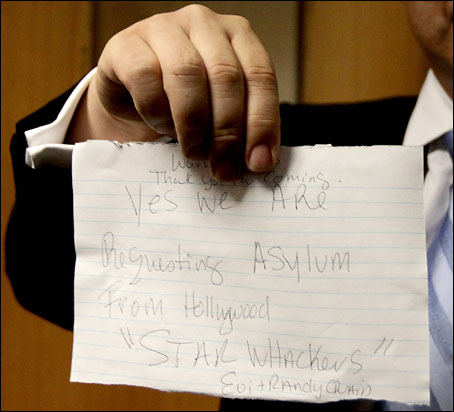 Thank you coming.
Yes We ARE
Requesting ASylum
From Hollywood
"STAR WHACKers"
Evi + RANdy QUAID